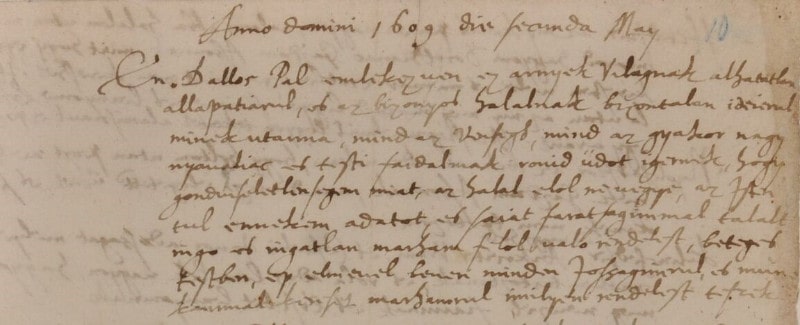 Anno domini 1609 die secunda May 10
En. Dallos Pal emlekezven ez arnyek Vilagnak alhatatlan
allapatiarul, es az bizonyos halalnak bizontalan ideierul
minek utanna, mind az Venseg, mind az gyakor nagy
nyavaliac es testi faidalmak rouid üdöt igernek, hogy
gonduiseletlensegem miat, az halal elol ne vegye, az Isten
tul ennekem adatot, es saiat faratsagimmal talalt
ingo es ingatlan marham felol valo rendelest, beteges
testben, ep elmeuel leuen minden Joszagimrul, es mun
kammal marhamrul imilyen rendelest teszek